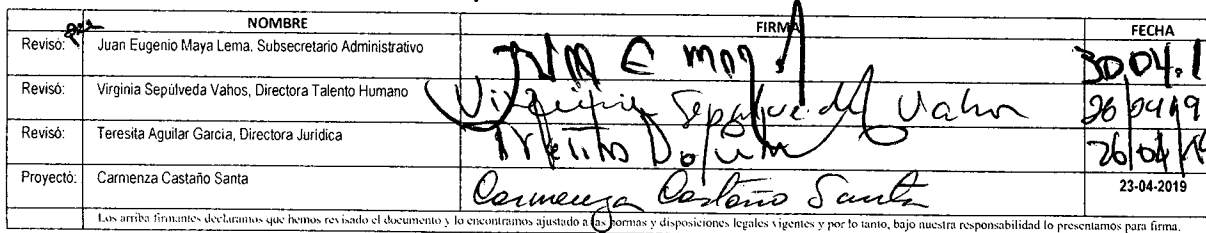 NOMBRE FIRMA FECHA
Revisó: Juan Eugenio Maya Lema. Subsecretario Administrativo 30.04.1
Revisó: Virginia Sepúlveda Vahos, Directora Talento Humano Virginia Sepulveda Vahos 26/04/19
Revisó: Teresita Aguilar García, Directora Jurídica 26/04/19
Proyectó: Carmenza Castaño Santa Carmenza Castaño Santa 23-04-2019
Los arriba firmantes declaramos que hemos revisado el documento y lo encontramos ajustado a las normas y disposiciones legales vigentes y por lo tanto, bajo nuestra responsabilidad lo presentamos para firma.